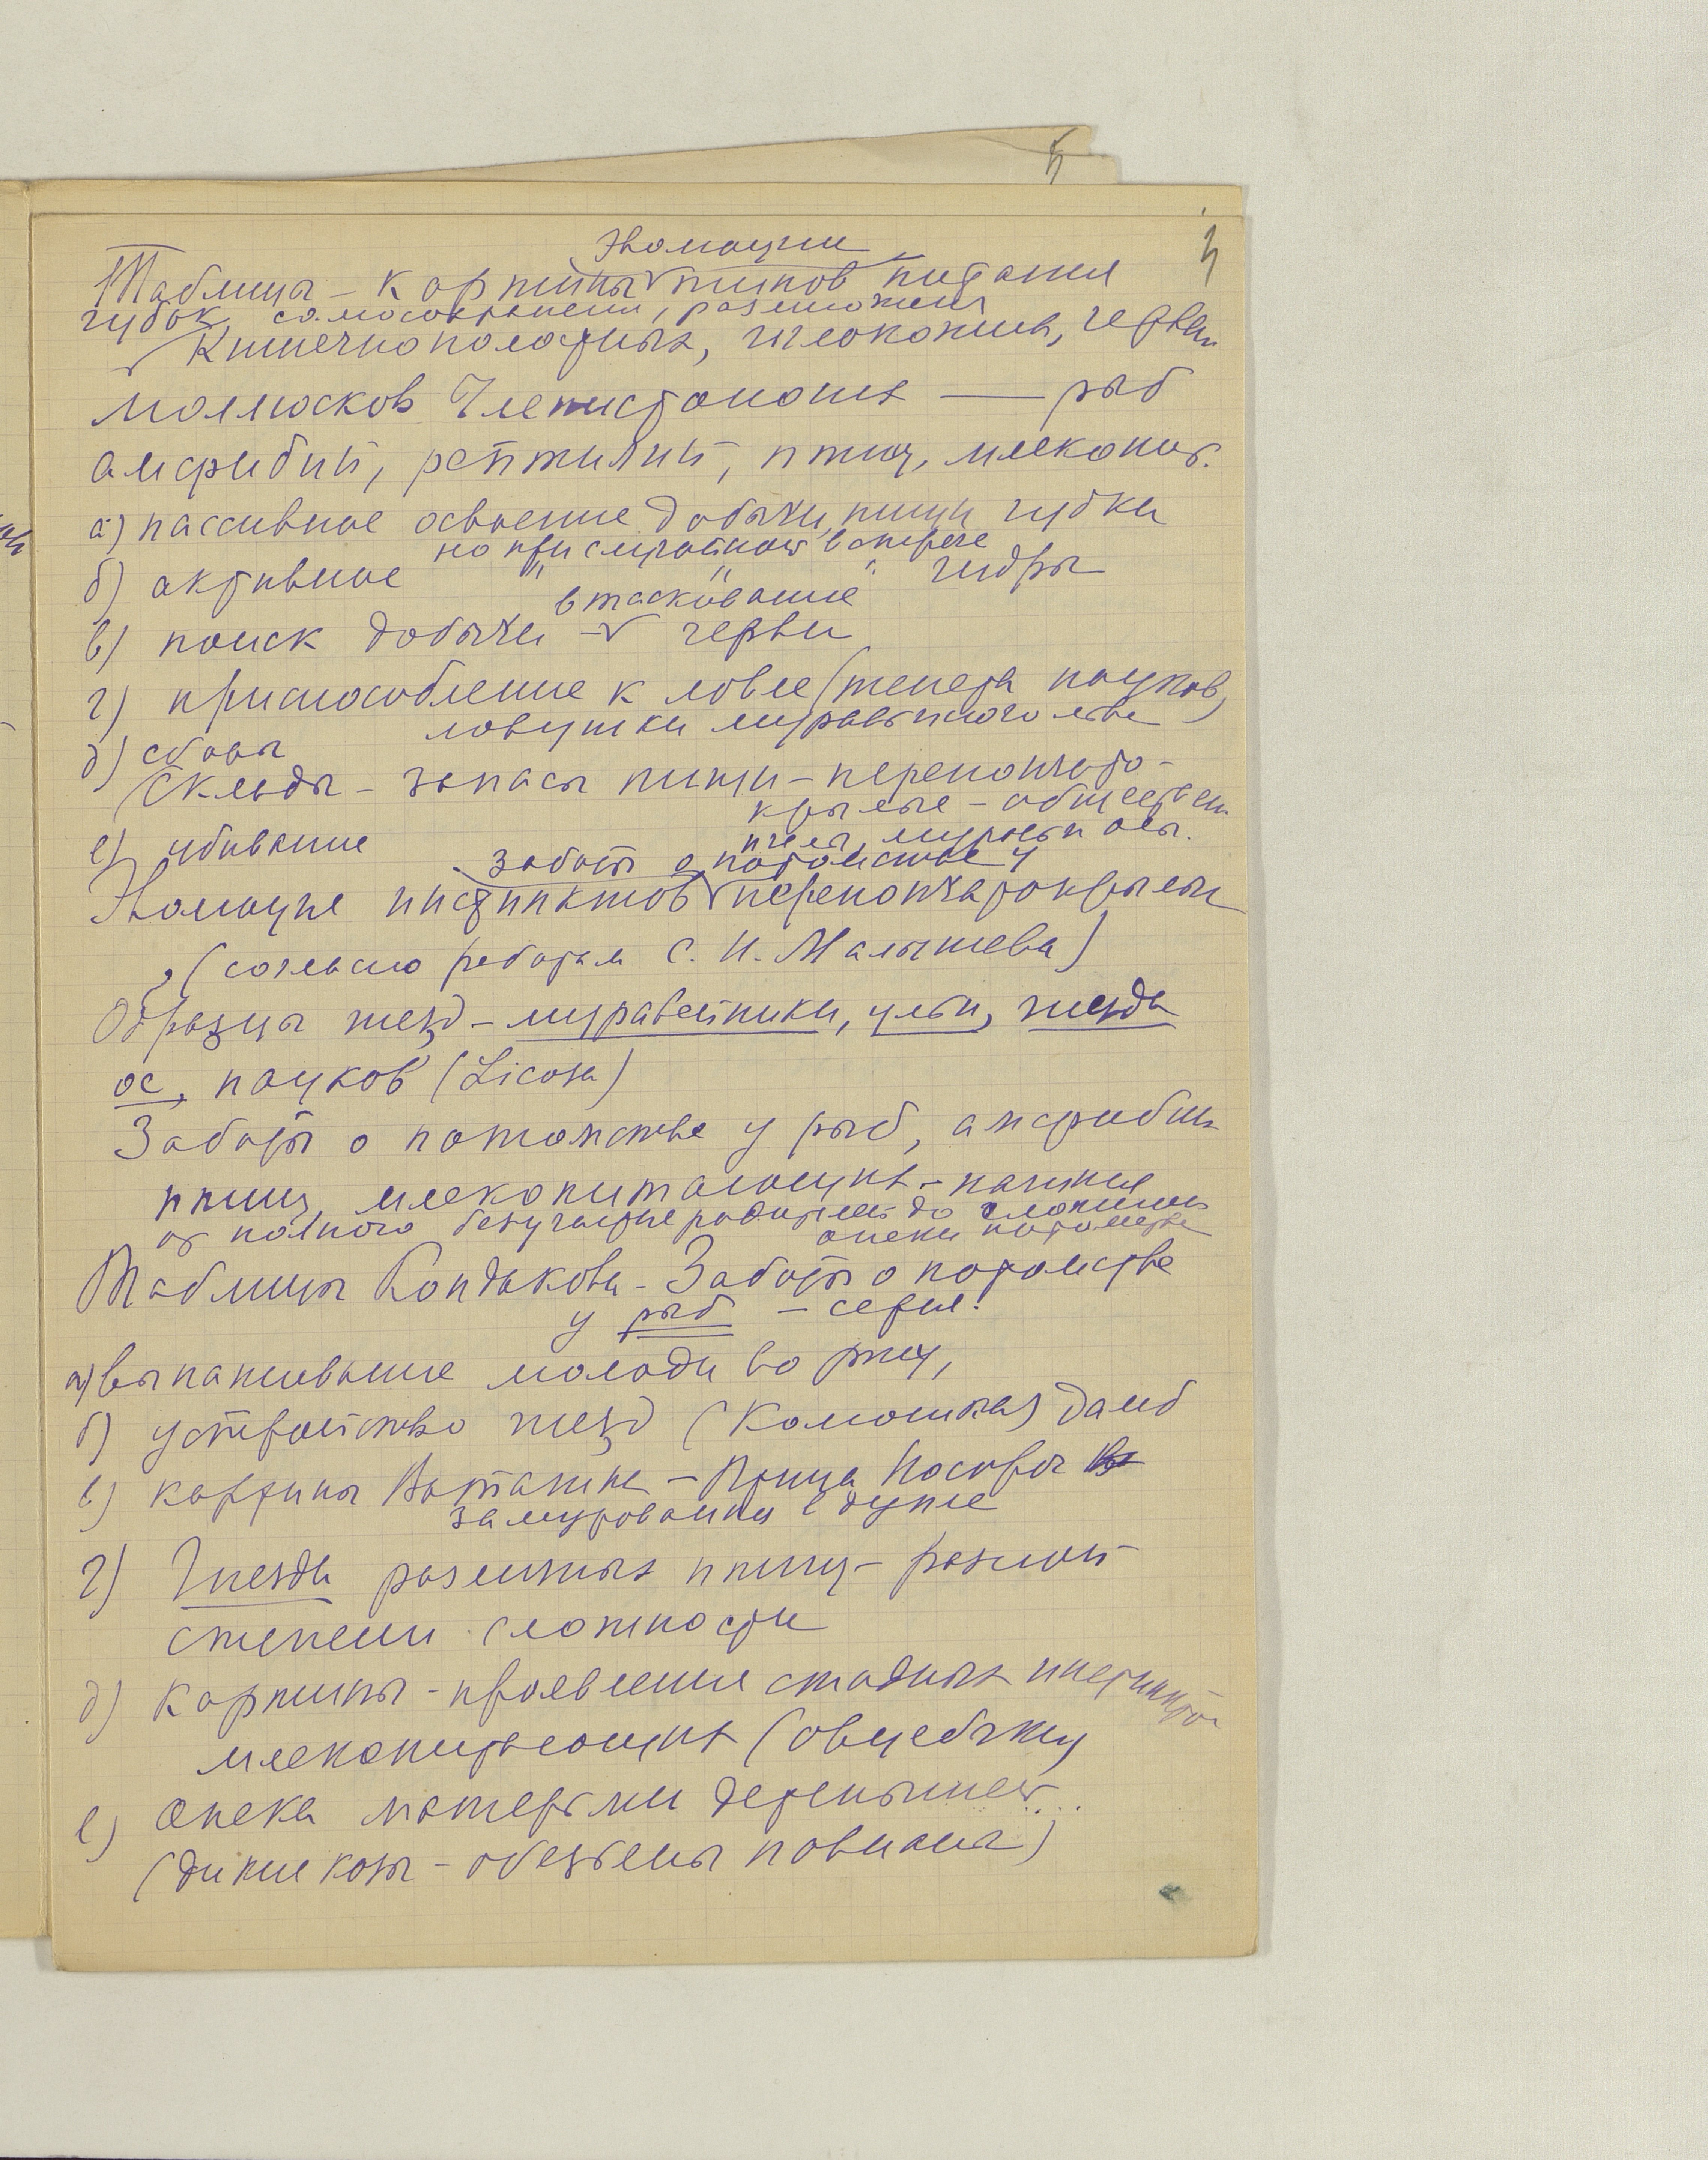 5
Эволюции
Таблица – картины типов питания
губок, самосохранения, размножения
Кишечнополостных, иглокожих, червей
моллюсков Членистоногих — рыб
амфибий, рептилий, птиц, млекопит.
а) пассивное освоение добычи, пищи губки
но при случайной встрече
б) активное " " " гидры
втаскивание
в) поиск добычи – черви
г) приспособление к ловле (тенета пауков,
ловушки муравьиного льва)
д) сборы
(Склады – запасы пищи – перепончато-
крылые – обществен.
пчелы, муравьи осы.
е) убивание
заботы о потомстве у
Эволюция инстинктов перепончатокрылых
(согласно работам С. И. Малышева)
Образцы гнезд – муравейники, ульи, гнезда
ос, пауков (Licosa)
Заботы о потомстве у рыб, амфибий
птиц, млекопитающих – начиная
от полного безучастия родителей до сложных
опеки потомства
Таблицы Кондакова – Заботы о потомстве
у рыб – серия!
а) вынашивание молоди во рту,
б) устройство гнезд (Колюшка)
в) картины Ватагина – Птица Носорог
замурованная в дупле
г) Гнезда различных птиц – разной
степени сложности
д) Картины – проявления стадных инстинктов
млекопитающих (овцебыки)
е) Опека матерями детенышей
(дикие козы – обезьяны павианы)